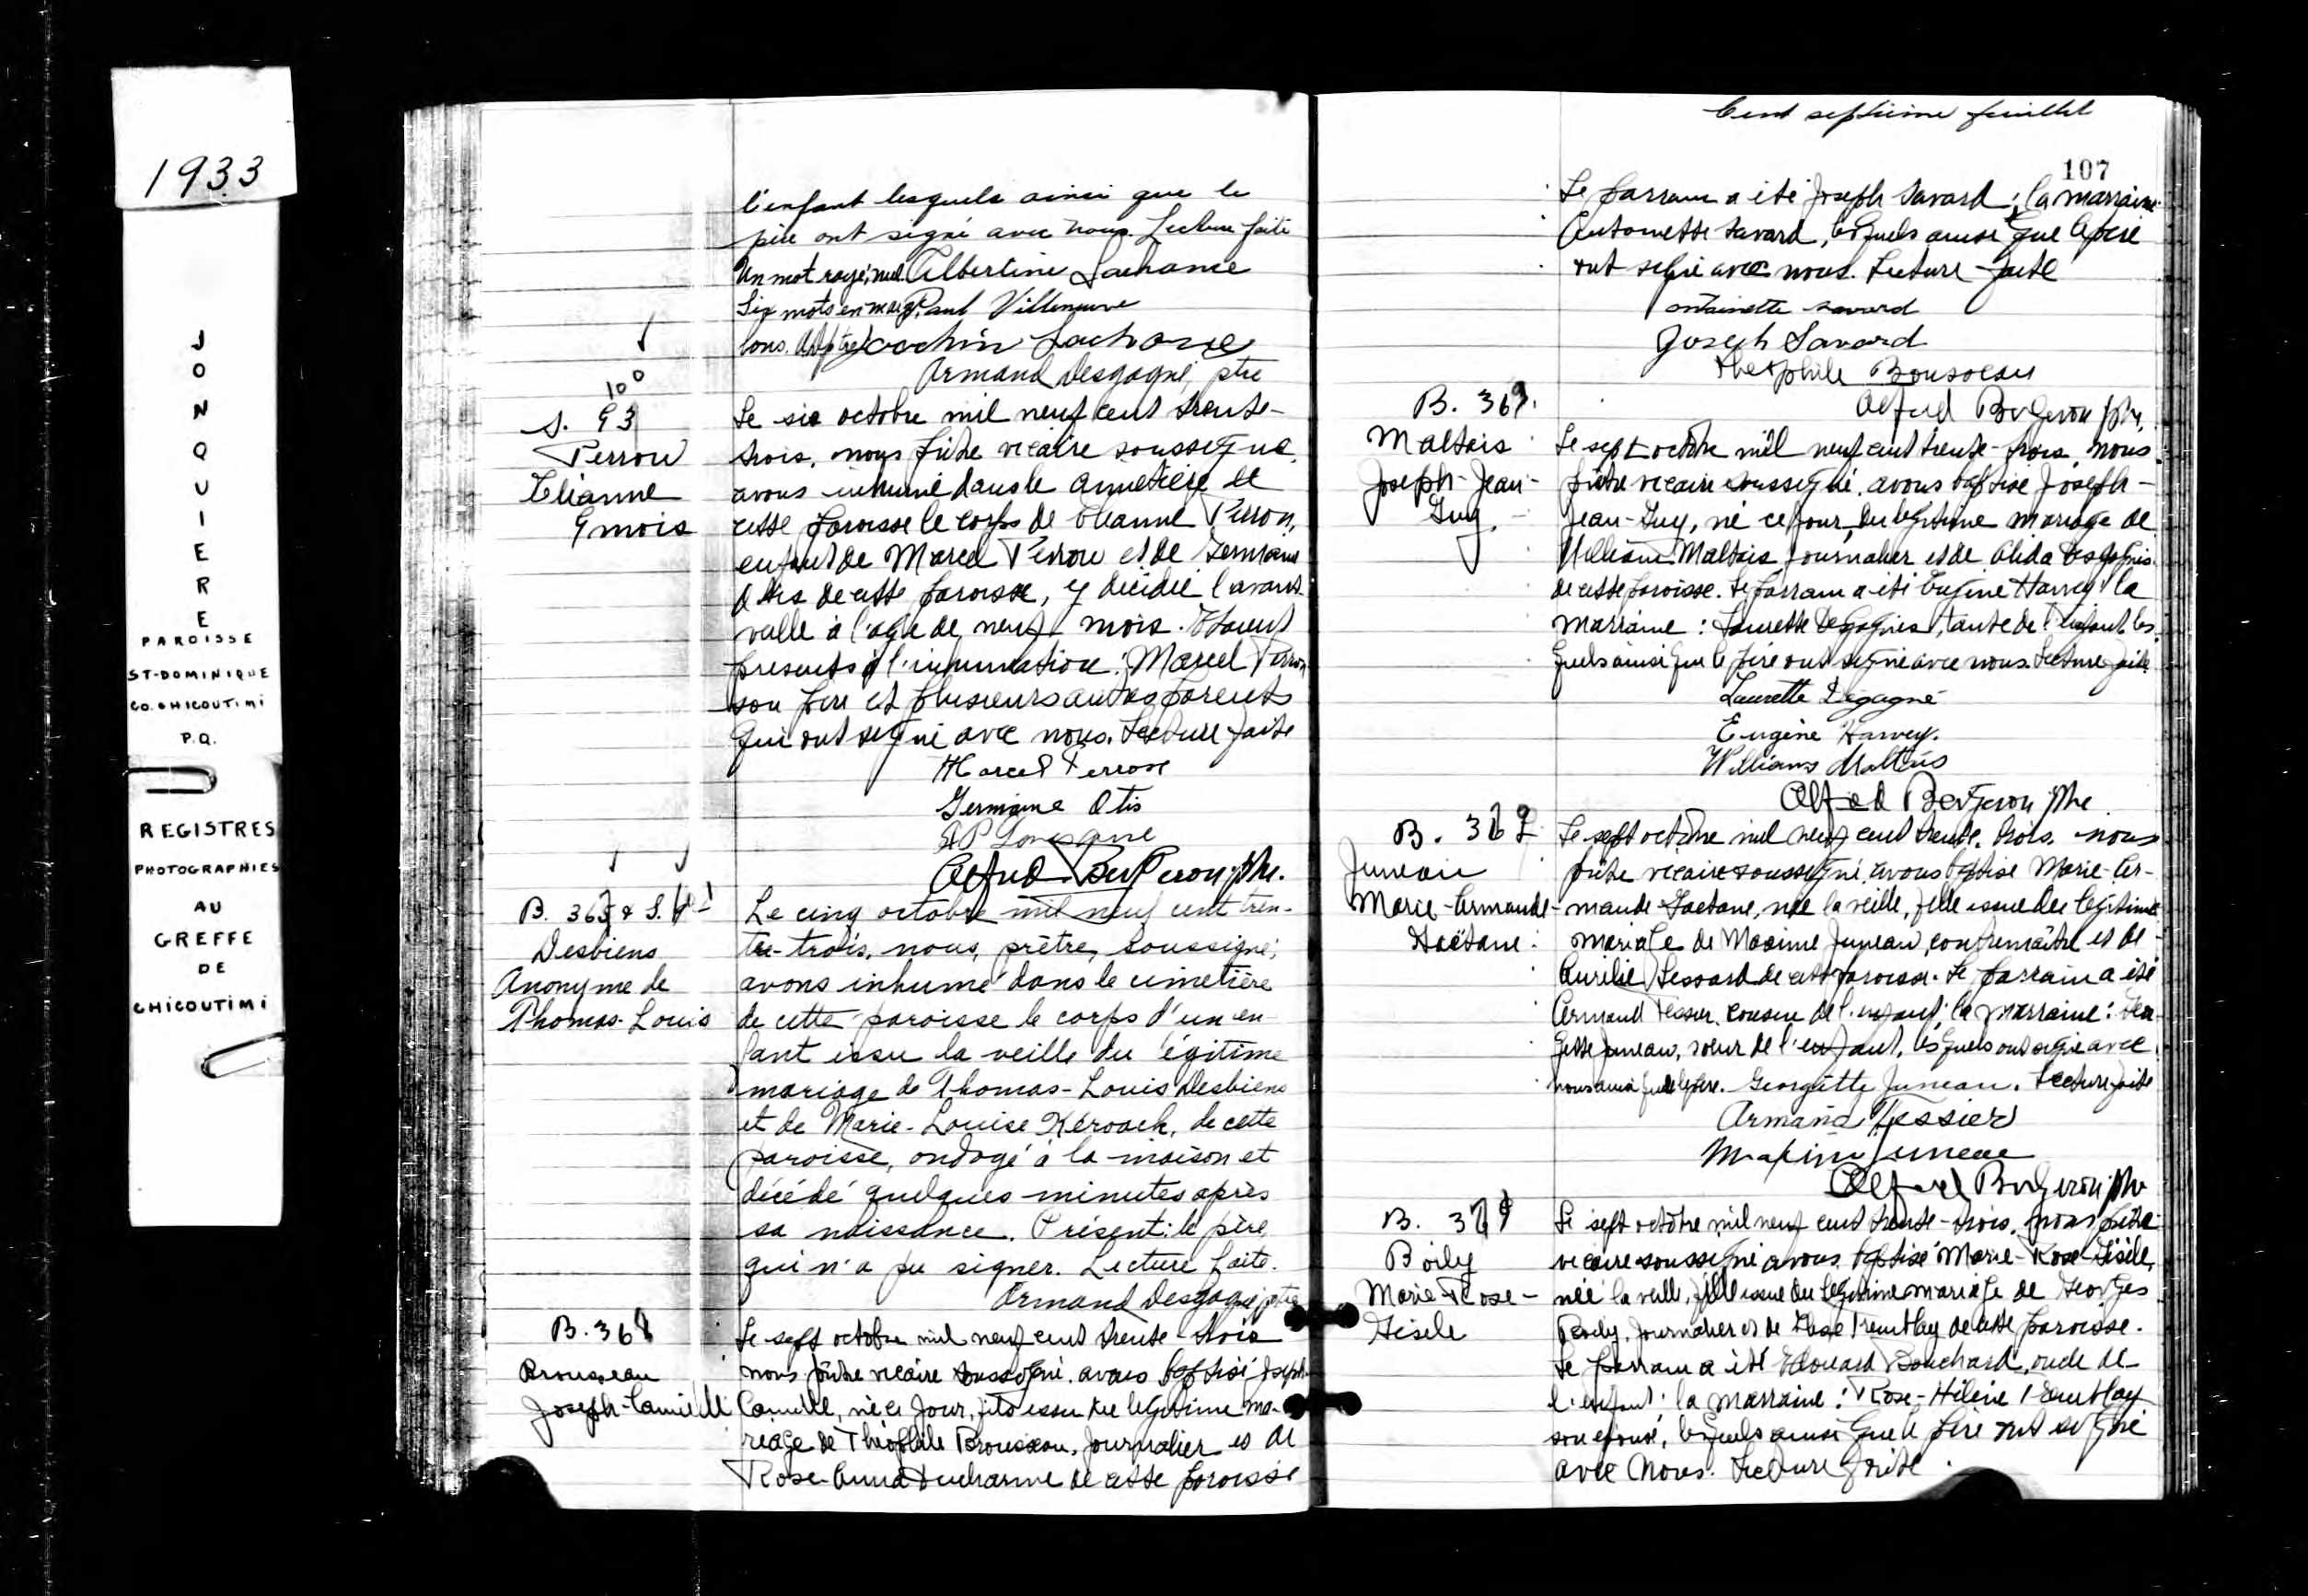 1933
JONQUIERE
PAROISSE
ST-DOMINIQUE
CO. CHICOUTIMI
P.Q.
REGISTRES
PHOTOGRAPHIES
AU
GREFFE
DE
CHICOUTIMI
l'enfant lesquels ainsi que le
père ont signé avec nous. Lecture faite
Un mot rayé, nul. Albertine Lachance
Six mots en marge Paul Villeneuve
bons. Lachance
Armand Desgagné, ptre
100
S. 93
Perron
Elianne
9 mois
Le six octobre mil neuf cent trente-
trois, nous prêtre vicaire soussigné,
avons inhumé dans le cimetière de
cette paroisse le corps de Eleanne Perron,
enfant de Marcel Perron et de Germaine
Otis de cette paroisse, y décédée l'avant
veille à l'age de neuf mois. Etaient
présents à l'inhumation: Marcel Perron
son père et plusieurs autres parents
qui ont signé avec nous. Lecture faite
Marcel Perron
Germaine Otis
Alfred Bergeron ptre.
B. 36 & S.
Desbiens
Anonyme de
Thomas-Louis
Le cinq octobre mil neuf cent tren-
te-trois, nous, prêtre, soussigné,
avons inhumé dans le cimetière
de cette paroisse le corps d'un en-
fant issu la veille du légitime
mariage de Thomas-Louis Desbiens
et de Marie-Louise Kéroack, de cette
paroisse, ondoyé à la maison et
décédé quelques minutes après
sa naissance. Présent: le père,
qui n'a pu signer. Lecture faite.
Armand Desgagné ptre
B. 368
Brousseau
Joseph-Camille
Le sept octobre mil neuf cent trente-trois
nous prêtre vicaire soussigné, avons baptisé Joseph-
Camille, né ce jour, fils issu du légitime ma-
riage de Théophile Brousseau, journalier et de
Rose-Anna Ducharme de cette paroisse
Cent septième feuillet
107
Le parrain a été Joseph Savard; la marraine
Antoinette Savard, lesquels ainsi que le père
ont signé avec nous. Lecture faite
antoinette savard
Joseph Savard
Théophile Brousseau
Alfred Bergeron ptre.
B. 369.
Maltais
Joseph-Jean-
Guy.
Le sept octobre mil neuf cent trente-trois, nous
prêtre vicaire soussigné, avons baptisé Joseph-
Jean-Guy, né ce jour, du légitime mariage de
William Maltais, journalier et de Alida Desgagnés
de cette paroisse. Le parrain a été Eugène Harvey la
marraine: Laurette Degagnés, tante de l'enfant, les-
quels ainsi que le père ont signé avec nous. Lecture faite
Laurette Dégagné
Eugène Harvey.
Williams Maltais
Alfred Bergeron ptre
B. 36
Juneau
Marie-Armande-
Gaëtane
Le sept octobre mil neuf cent trente-trois, nous
prêtre vicaire soussigné avons baptisé Marie-Ar-
mande Gaetane, née la veille, fille issue du légitime
mariage de Maxime Juneau, contremaître et de
Aurélie Lessard de cette paroisse. Le parrain a été
Armand Tessier, cousin de l'enfant; la marraine: Geor-
gette Juneau, soeur de l'enfant, lesquels ont signé avec
nous ainsi que le père. Georgette Juneau. Lecture faite
Armand Tessier
Maxime Juneau
Alfred Bergeron ptre
B. 37
Boily
Marie-Rose-
Gisèle
Le sept octobre mil neuf cent trente-trois, nous prêtre
vicaire soussigné avons baptisé Marie-Rose-Gisèle,
née la veille, fille issue du légitime mariage de Georges
Boily, journalier et de Tremblay de cette paroisse.
Le parrain a été Edouard Bouchard, oncle de
l'enfant; la marraine: Rose-Hélène Tremblay
son épouse, lesquels ainsi que le père ont signé
avec nous. Lecture faite.